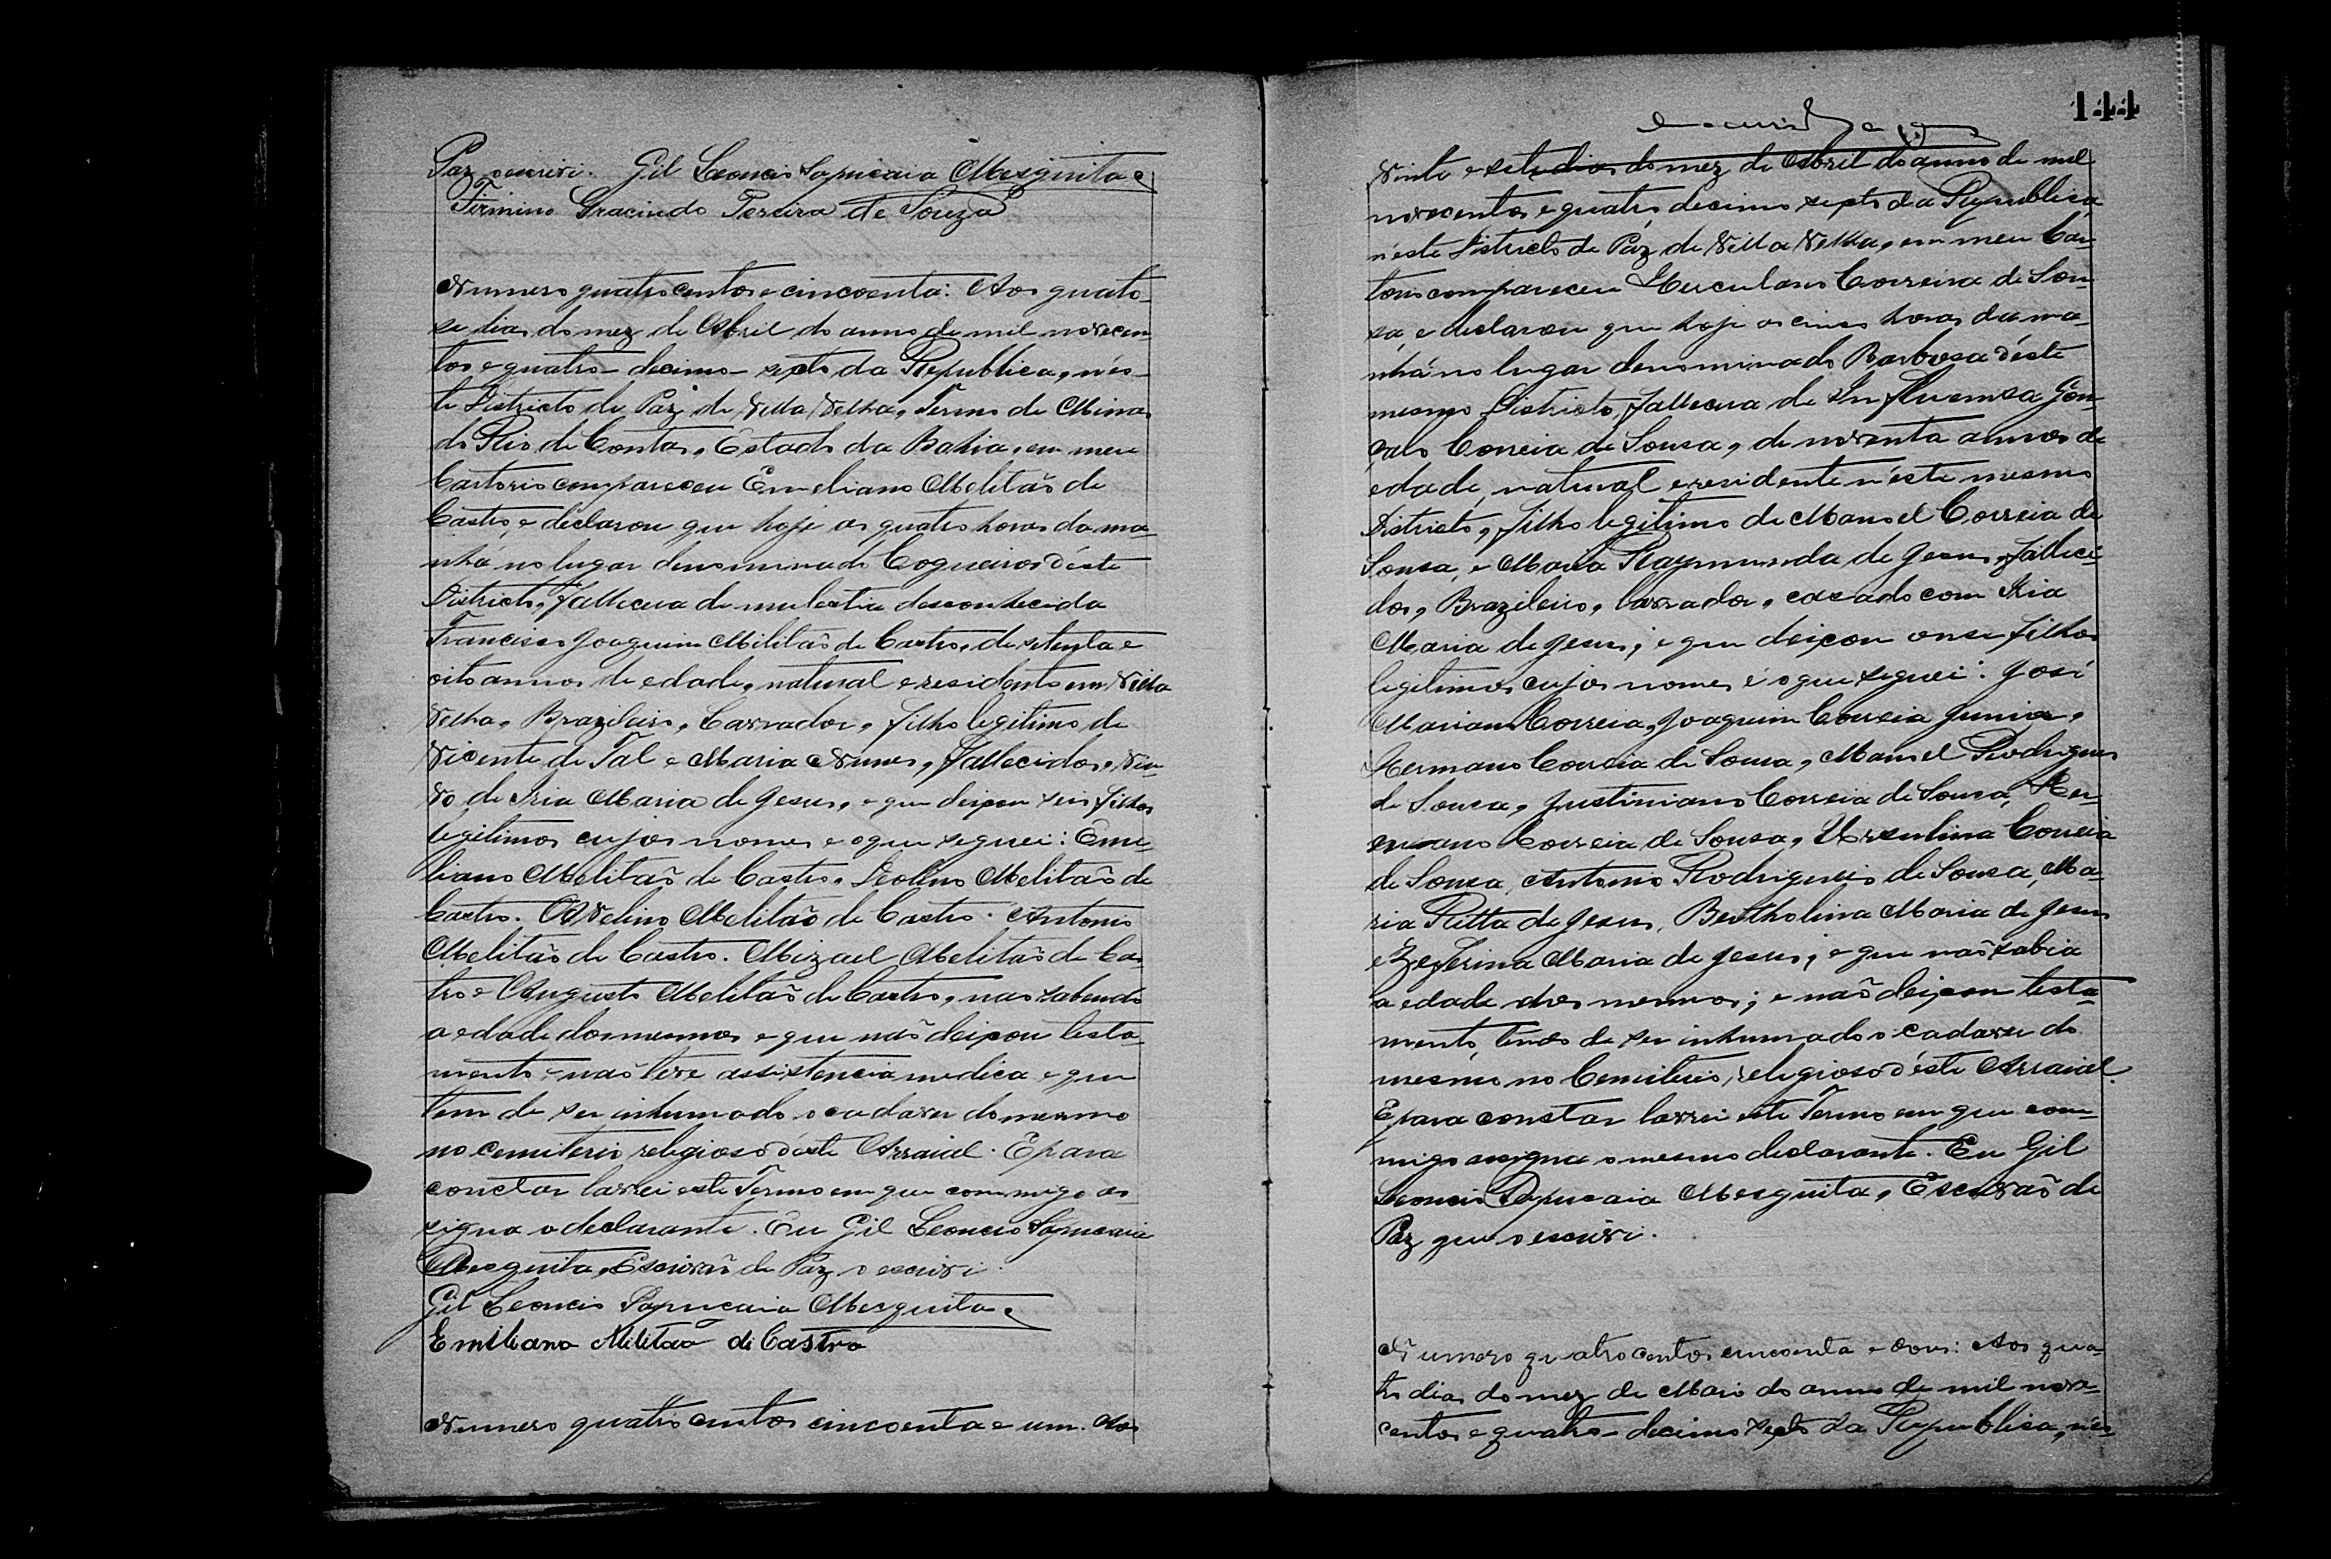 Paz o escrivi. Gil Leoncio Sapucaia Mesquita
Firmino Gracindo Pereira de Souza
Numero quatro centos e cincoenta: Aos quato-
se dias do mez de Abril do anno de mil novecen
tos e quatro – decimo – sexto da Republica, n'es-
te Districto de Paz de Villa Velha, Termo de Minas
do Rio de Contas, Estado da Bahia, em meu
Cartorio compareceu Emeliano Melitaõ de
Castro, e declarou que hoje as quatro horas da ma-
nhá no lugar denominado Coqueiros d'éste
Districto, fallecera de mulestia desconhecida
Francisco Joaquim Militaõ de Castro, de setenta e
oito annos de edade, natural e residente em Villa
Velha, Brazileiro, Lavrador, filho legitimo de
Vicente de Tal e Maria Nunes, fallecidos, Viu-
vo de Iria Maria de Jesus, e que deixou seis filhos
legitimos cujos nomes e o que seguei: Eme-
liano Melitaõ de Castro, Deolino Melitaõ de
Castro. Avelino Melitaõ de Castro. Antonio
Melitaõ de Castro. Mizael Melitaõ de Cas-
tro e Augusto Melitaõ de Castro, nao sabendo
a edade dos mesmos e que naõ deixou testa-
mento e naõ teve assistencia medica e que
tem de ser inhumado o cadaver do mesmo
no cemiterio religioso d'éste Arraial. E para
constar lavrei este Termo em que commigo as-
signa o declarante. Eu Gil Leoncio Sapucaia
Mesquita, Escrivaõ de Paz o escrivi.
Gil Leoncio Sapucaia Mesquita
Emiliano Militaõ de Castro
Numero quatro centos cincoenta e um. Aos
144
vinte e sete dias do mez de Abril do anno de mil
novecentos e quatro, decimo sexto da Republica,
n'éste Districto de Paz de Villa Velha, em meu Car-
torio compareceu Herculano Correia de Sou-
sa, e declarou que hoje as cinco horas da ma-
nhá no lugar denominado Barbosa d'éste
mesmo Districto, fallecera de Influensa Gon-
calo Correia de Sousa, de noventa annos de
edade, natural e residente n'éste mesmo
Districto, filho legitimo de Manoel Correia de
Sousa, e Maria Raymunda de Jesus, falleci-
dos, Brazileiro, lavrador, cazado com Iria
Maria de Jesus; e que deixou onse filhos
legitimos cujos nomes é o que seguei: José
Mariano Correia, Joaquim Correia Junior,
Hermano Correia de Sousa, Manoel Rodrigues
de Sousa, Justiniano Correia de Sousa, Her-
culano Correia de Sousa, Urzulina Correia
de Sousa, Antonio Rodrigueis de Sousa, Ma-
ria Ritta de Jesus, Bertholina Maria de Jesus
e Zeferina Maria de Jesus; e que naõ sabia
a edade dos mesmos; e naõ deixou testa-
mento, tendo de ser inhumado o cadaver do
mesmo no Cemiterio, religioso d'éste Arraial.
E para constar lavrei este Termo em que com-
migo assigna o mesmo declarante. Eu Gil
Leoncio Sapucaia Mesquita, Escrivaõ de
Paz que o escrivi.
Numero quatro centos cincoenta e dous: Aos qua-
tro dias do mez de Maio do anno de mil nove-
centos e quatro – decimo sexto da Republica, n'és-